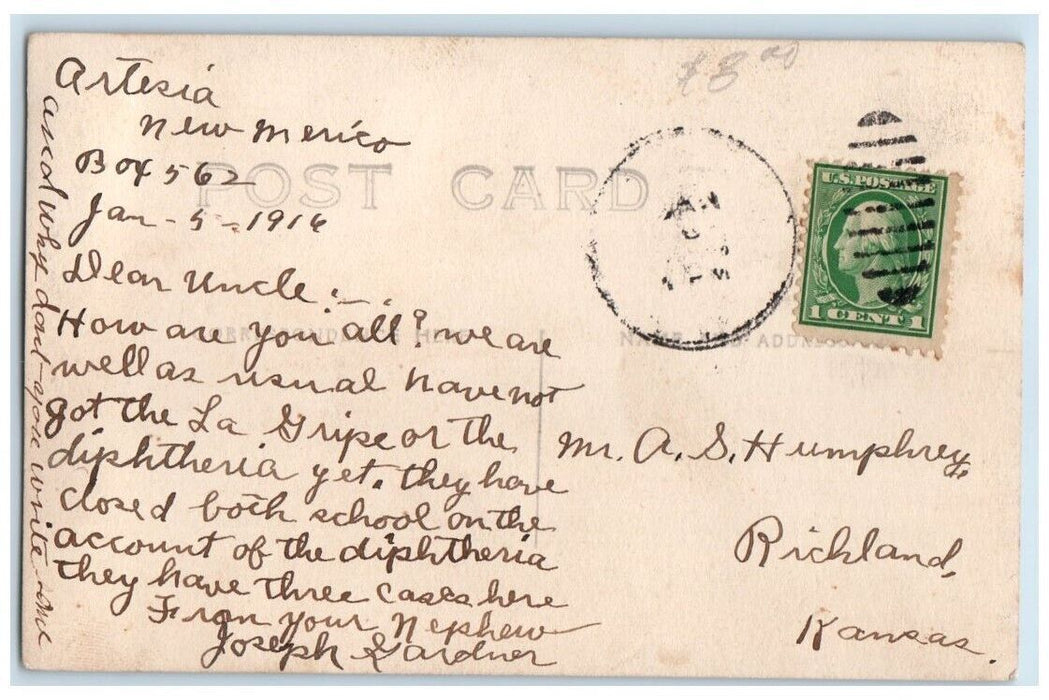 Artesia
New Mexico
Box 562
Jan - 5 - 1916
Dear Uncle:-
How are you all? we are
well as usual have not
got the La Gripe or the
diphtheria yet. they have
closed both school on the
account of the diphtheria
they have three cases here
From your Nephew
Joseph Gardner
and why dont you write some
$3.00
POST CARD
CORRESPONDENCE HERE
NAME AND ADDRESS
U.S. POSTAGE
1 CENT 1
Mr. A. S. Humphrey,
Richland,
Kansas.